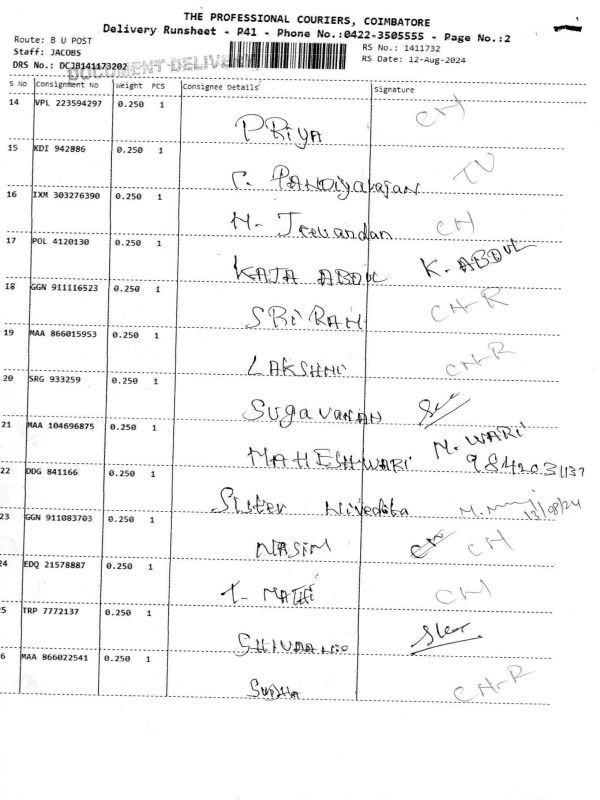 THE PROFESSIONAL COURIERS, COIMBATORE
Delivery Runsheet - P41 - Phone No.:0422-3505555 - Page No.:2
Route: B U POST
RS No.: 1411732
Staff: JACOBS
RS Date: 12-Aug-2024
DRS No.: DCJB141173202
DOCUMENT-DELIVE
S No Consignment No Weight PCS Consignee Details Signature
14 VPL 223594297 0.250 1 PRIYA CH
15 KDI 942886 0.250 1 PANDIYARAJAN TV
16 IXM 303276390 0.250 1 N. Jeevandan CH
17 POL 4120130 0.250 1 KAJA ABDUL K. ABDUL
18 GGN 911116523 0.250 1 SRIRAM CH-R
19 MAA 866015953 0.250 1 LAKSHMI CH-R
20 SRG 933259 0.250 1 SUGAVANAN
21 MAA 104696875 0.250 1 MAHESHWARI M. WARI
22 DDG 841166 0.250 1 Sister Nivedita 13/08/24
23 GGN 911083703 0.250 1 NASIM CH
24 EDQ 21578887 0.250 1 CH
5 TRP 7772137 0.250 1
6 MAA 866022541 0.250 1 SUDHA CH-R